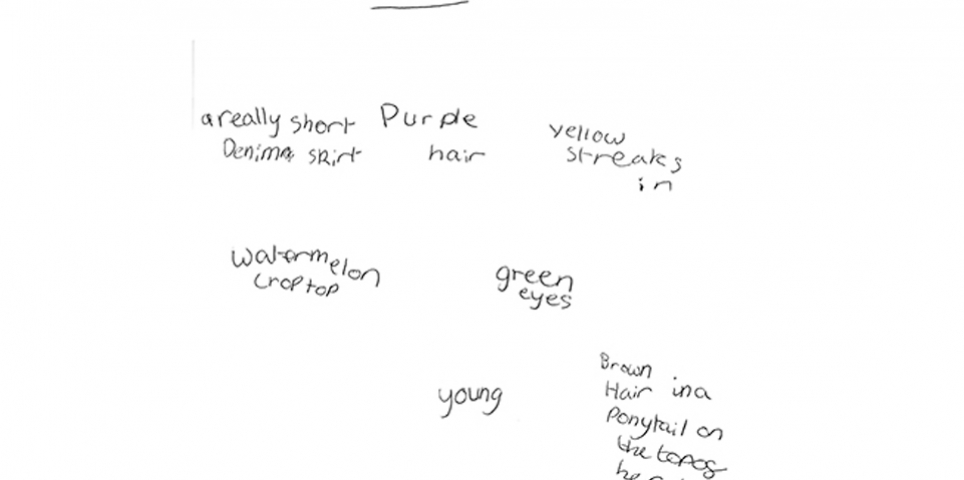 a really short
Denima skirt
Purple
hair
yellow
streaks
in
watermelon
crop top
green
eyes
young
Brown
Hair in a
Ponytail on
the top of